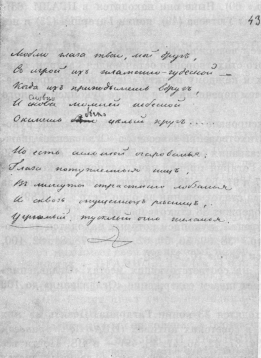 43
Люблю глаза твои, мой другъ,
Съ игрой ихъ пламенно-чудесной —
Когда ихъ приподымешь вдругъ,
И словно молніей небесной
Окинешь бѣгло цѣлый кругъ....
Но есть сильнѣй очарованья:
Глаза потупленные ницъ,
Въ минуты страстнаго лобзанья
И сквозь опущенныхъ рѣсницъ
Угрюмый, тусклый огнь желанья.